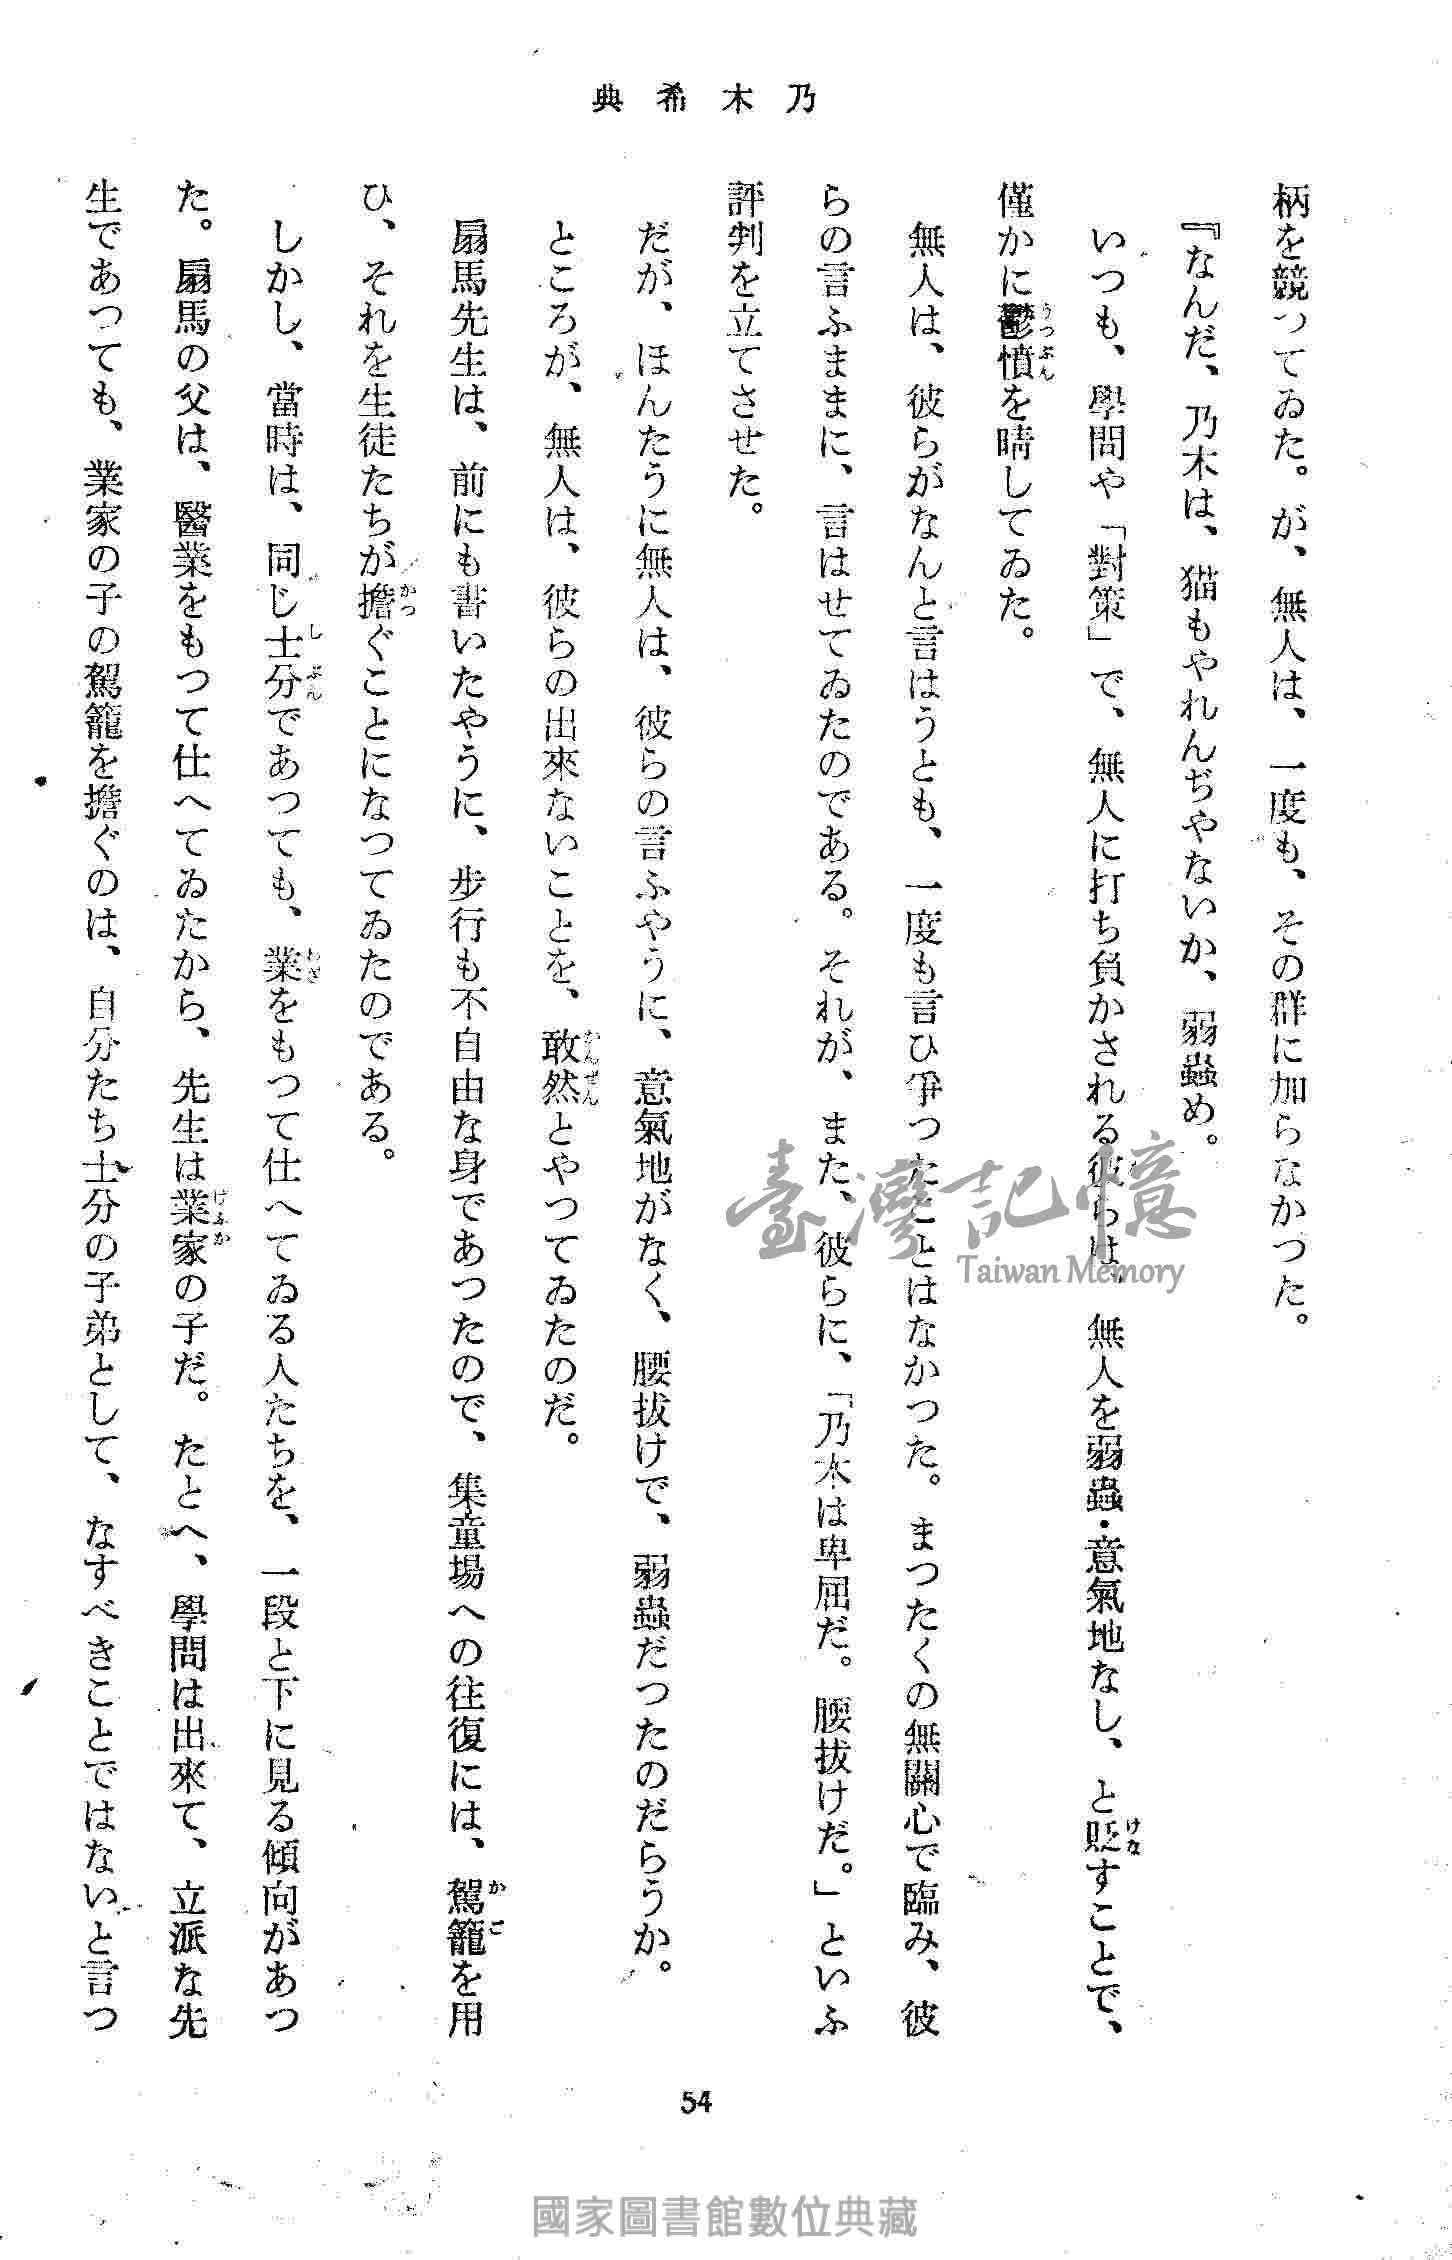 乃木希典
柄を競つてゐた。が、無人は、一度も、その群に加らなかつた。
『なんだ、乃木は、猫もやれんぢやないか、弱蟲め。
いつも、學問や「對策」で、無人に打ち負かされる彼らは、無人を弱蟲・意氣地なし、と貶すことで、
僅かに鬱憤を晴してゐた。
無人は、彼らがなんと言はうとも、一度も言ひ爭つたことはなかつた。まつたくの無關心で臨み、彼
らの言ふままに、言はせてゐたのである。それが、また、彼らに、「乃木は卑屈だ。腰拔けだ。」といふ
評判を立てさせた。
だが、ほんたうに無人は、彼らの言ふやうに、意氣地がなく、腰拔けで、弱蟲だつたのだらうか。
ところが、無人は、彼らの出來ないことを、敢然とやつてゐたのだ。
扇馬先生は、前にも書いたやうに、步行も不自由な身であつたので、集童場への往復には、駕籠を用
ひ、それを生徒たちが擔ぐことになつてゐたのである。
しかし、當時は、同じ士分であつても、業をもつて仕へてゐる人たちを、一段と下に見る傾向があつ
た。扇馬の父は、醫業をもつて仕へてゐたから、先生は業家の子だ。たとへ、學問は出來て、立派な先
生であつても、業家の子の駕籠を擔ぐのは、自分たち士分の子弟として、なすべきことではないと言つ
54
臺灣記憶
Taiwan Memory
國家圖書館數位典藏